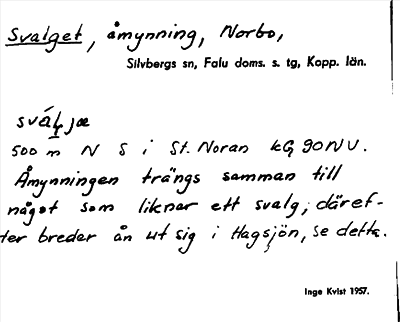 Svalget, åmynning, Norbo,
Silvbergs sn, Falu doms. s. tg, Kopp. län.
sväljæ
500 m N S i St. Noran kG 90NV.
Åmynningen trängs samman till
något som liknar ett svalg, däref-
ter breder ån ut sig i Hagsjön, se detta.
Inge Kvist 1957.